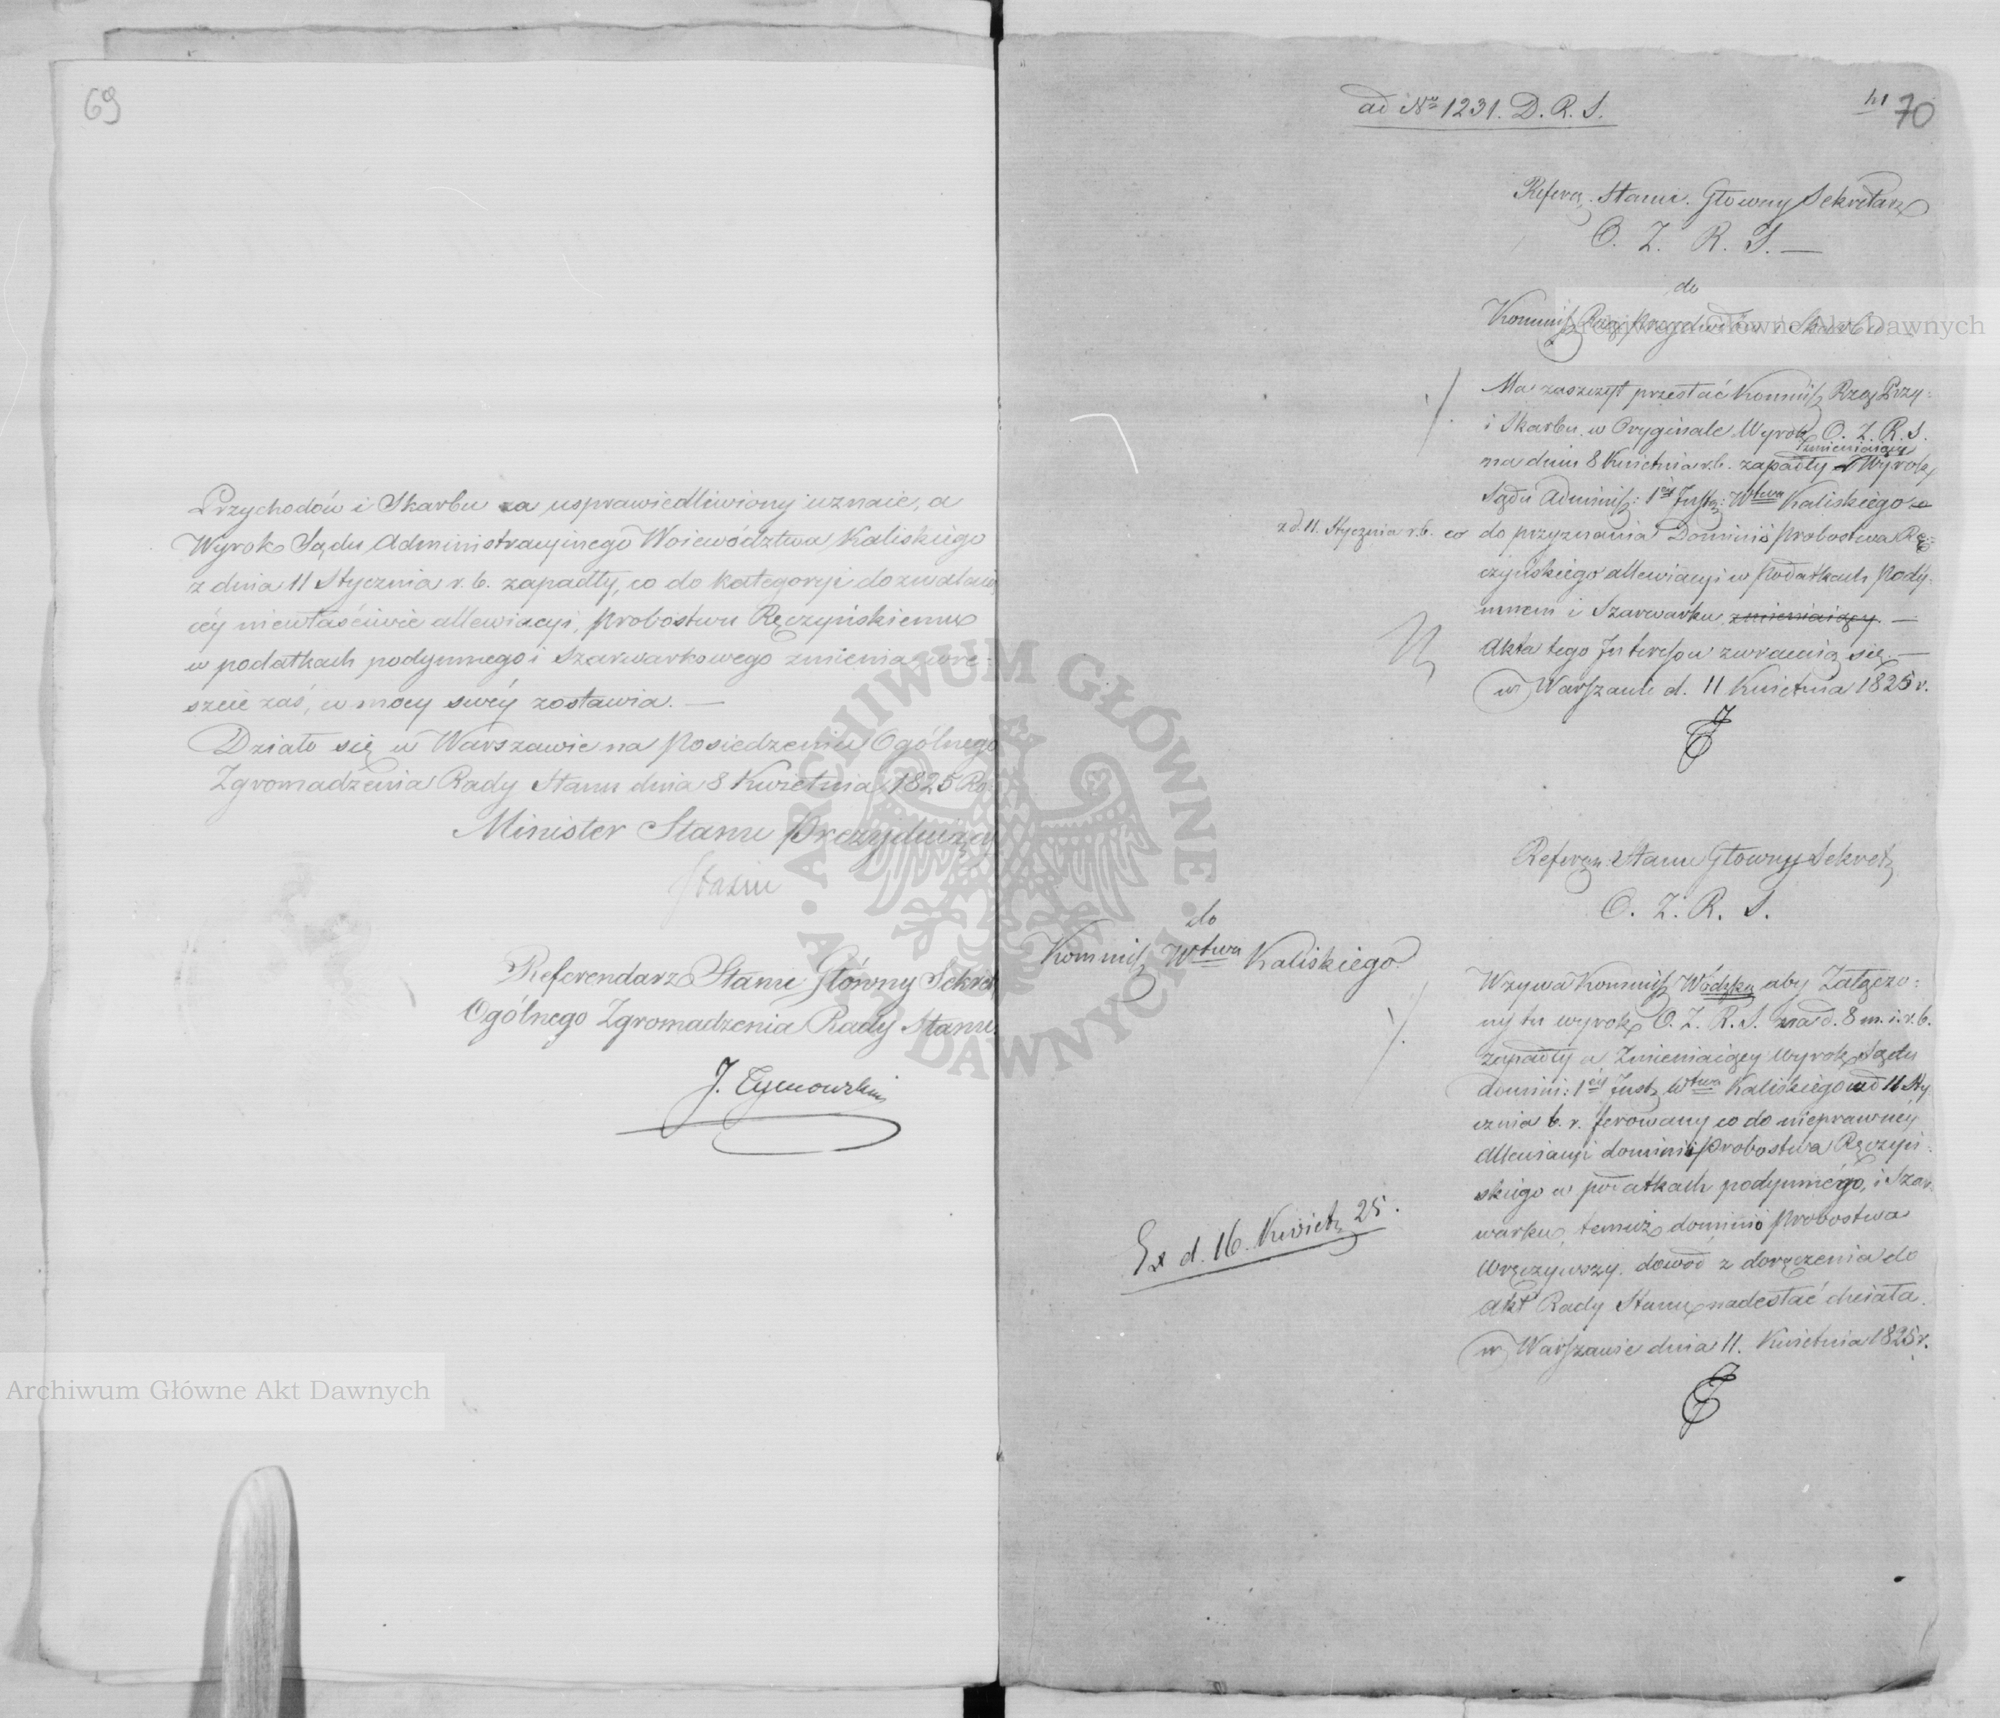 69
Przychodów i Skarbu za usprawiedliwiony uznaie, a
Wyrok Sądu Administracyinego Woiewództwa Kaliskiego
z dnia 11 Stycznia r. b. zapadły, co do kategoryi dozwalaią
céy niewłaściwie allewiacyi, Probostwu Ręczyńskiemu
w podatkach podymnego i Szarwarkowego zmienia, wre-
szcie zaś, w mocy swéy zostawia. —
Działo się w Warszawie na Posiedzeniu Ogólnego
Zgromadzenia Rady Stanu dnia 8 Kwietnia 1825 Ro
Minister Stanu Prezyduiący
Staszic
Referendarz Stanu Główny Sekret
Ogólnego Zgromadzenia Rady Stanu.
J. Tymowski
Archiwum Główne Akt Dawnych
ad Nro 1231. D. R. S.
41 70
Referen. Stanu. Głowny Sekretarz
O. Z. R. S. —
do
Kommiss Rząd Przychodów i Skarbu —
Archiwum Główne Akt Dawnych
Ma zaszczyt przesłać Kommiss Rząd Przy:
i Skarbu w Oryginale Wyrok O. Z. R. S.
zmieniaiący
na dniu 8 Kwietnia r. b. zapadły Wyrok
Sądu Administ: 1éy Instan: Wtwa Kaliskiego
z d. 11. Stycznia r. b. co do przyznania Dominio Probostwa Rę-
czyńskiego allewiacyi w Podatkach Pody-
mnem i Szarwarku zmieniaiący. —
Akta tego Interessu zwracaią się. —
w Warszawie d. 11 Kwietnia 1825 r.
Referen. Stanu Głowny Sekret
O. Z. R. S.
do
Kommiss Wtwa Kaliskiego.
Wzywa Kommiss Wódzką aby Załączo-
ny tu wyrok O. Z. R. S. na d. 8 m. i. r. b.
zapadły a Zmieniaiący Wyrok Sądu
Admini: 1éy Inst. Wtwa Kaliskiego d 11 Sty
cznia b. r. ferowany co do nieprawnéy
Allewiacyi dominii Probostwa Ręczyń-
skiego w podatkach podymnego, i Szar-
warku, temuż dominio Probostwa
Wręczywszy, dowód z doręczenia do
Akt Rady Stanu nadesłać chciała.
w Warszawie dnia 11. Kwietnia 1825 r.
Ex d. 16. Kwiet 25.
ARCHIWUM GŁÓWNE AKT DAWNYCH